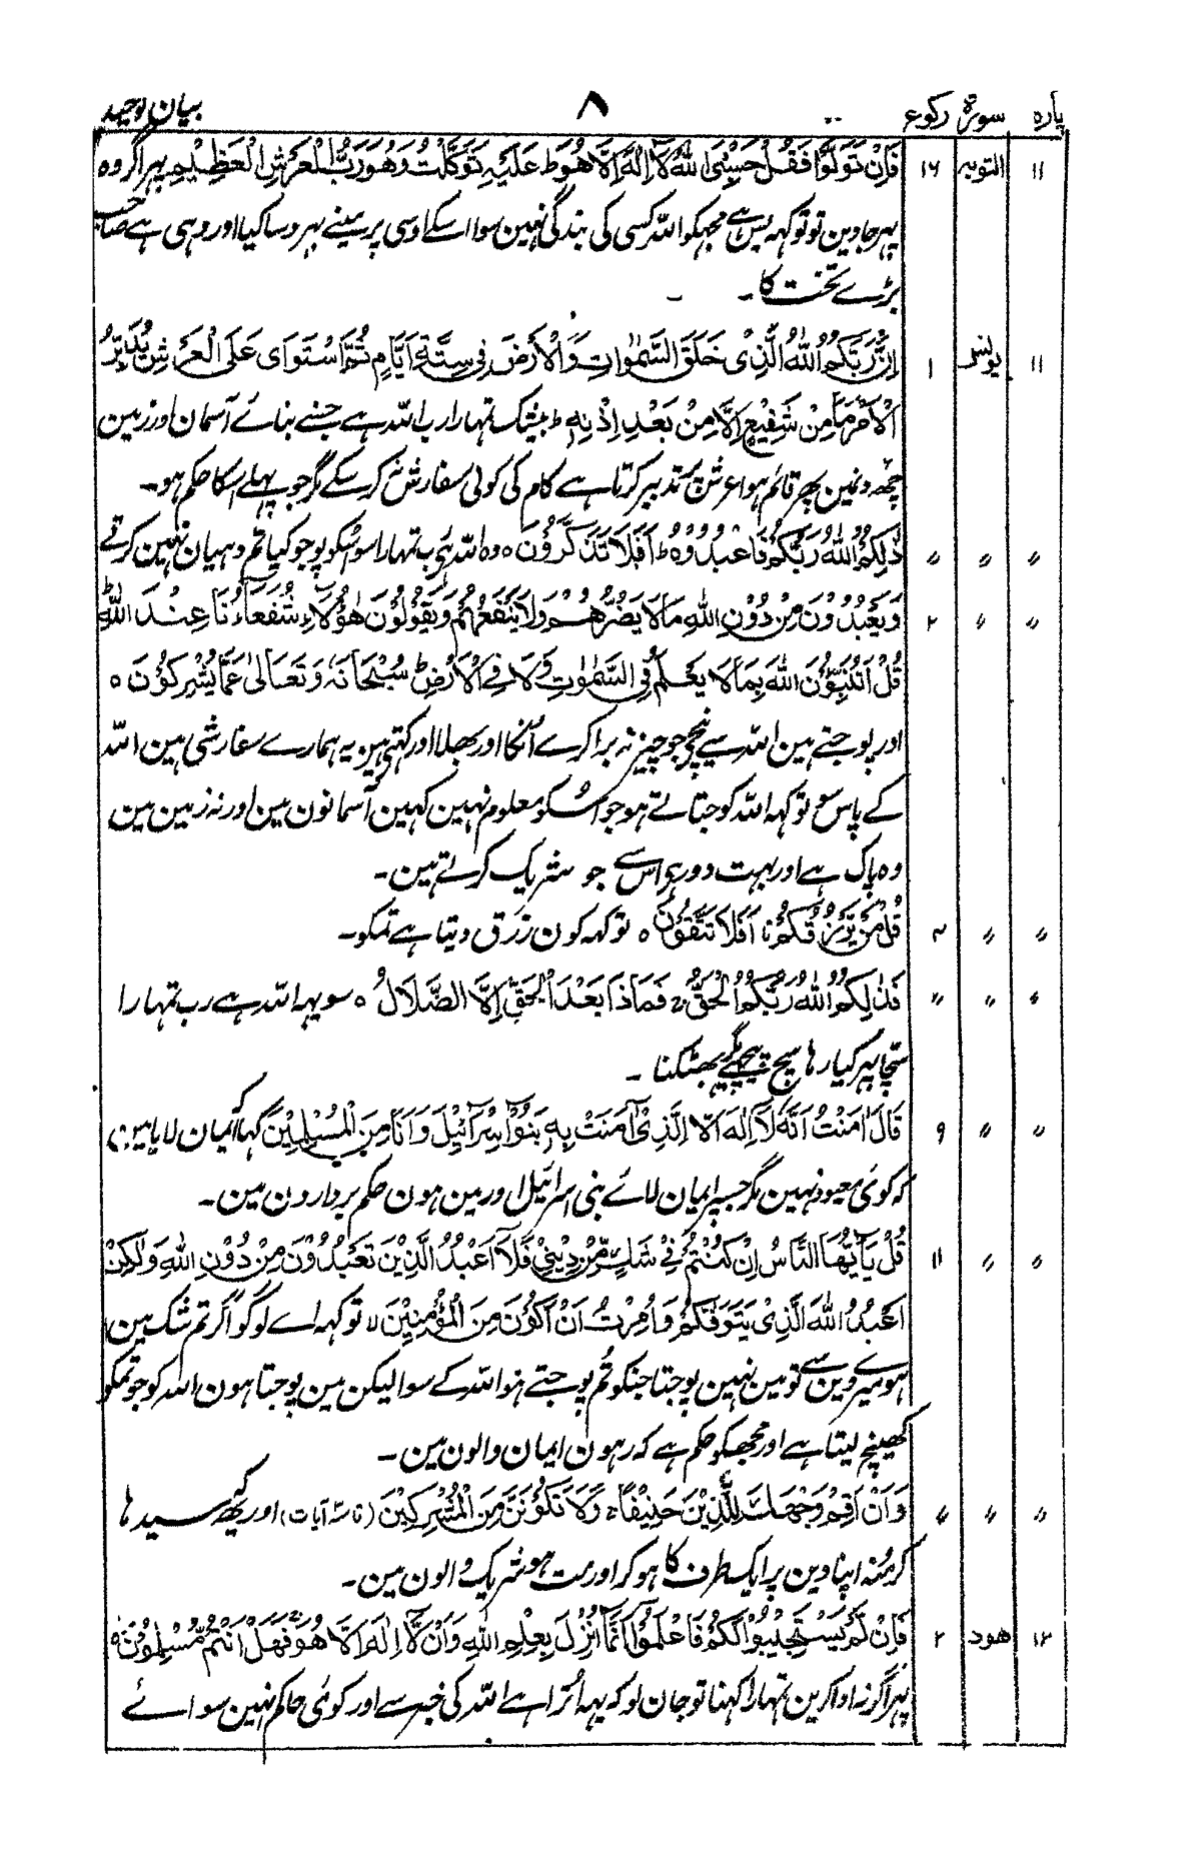 پارہ سورۃ رکوع ٨ بیان توحید
١١ التوبہ ١٦ فَاِنْ تَوَلَّوْا فَقُلْ حَسْبِيَ اللهُ لَآ اِلٰهَ اِلَّا هُوَ ط عَلَيْهِ تَوَكَّلْتُ وَهُوَ رَبُّ الْعَرْشِ الْعَظِيْمِ پہر اگر وہ
پہر جاوین تو تو کہہ بس ہے مجہکو اللہ کسی کی بندگی نہین سوا اسکے اوسی پر مینے بہروسا کیا اور وہی ہے صاحب
بڑے تخت کا۔
١١ یونس ١ اِنَّ رَبَّكُمُ اللهُ الَّذِيْ خَلَقَ السَّمٰوٰتِ وَالْاَرْضَ فِيْ سِتَّةِ اَيَّامٍ ثُمَّ اسْتَوٰى عَلَى الْعَرْشِ يُدَبِّرُ
الْاَمْرَ مَا مِنْ شَفِيْعٍ اِلَّا مِنْ بَعْدِ اِذْنِهٖ ط بیشک تمہارا رب اللہ ہے جسنے بنائے آسمان اور زمین
چھہ دنمین پھر قائم ہوا عرش پر تدبیر کرتا ہے کام کی کوئی سفارش نکرسکے مگر جو پہلے اسکا حکم ہو۔
〃 〃 〃 ذٰلِكُمُ اللهُ رَبُّكُمْ فَاعْبُدُوْهُ ط اَفَلَا تَذَكَّرُوْنَ ہ وہ اللہ ہے رب تمہارا سو اسکو پوجو کیا تم دہیان نہین کرتے
〃 〃 ٢ وَيَعْبُدُوْنَ مِنْ دُوْنِ اللهِ مَا لَا يَضُرُّهُمْ وَلَا يَنْفَعُهُمْ وَيَقُوْلُوْنَ هٰؤُلَآءِ شُفَعَآءُنَا عِنْدَ اللهِ ط
قُلْ اَتُنَبِّئُوْنَ اللهَ بِمَا لَا يَعْلَمُ فِي السَّمٰوٰتِ وَلَا فِي الْاَرْضِ ط سُبْحَانَهٗ وَتَعَالٰى عَمَّا يُشْرِكُوْنَ ہ
اور پوجتے ہین اللہ سے نیچے جو چیز نہ برا کرے اُنکا اور بھلا اور کہتے ہین یہ ہمارے سفارشی ہین اللہ
کے پاس تو کہہ اللہ کو جتاتے ہو جو اسکو معلوم نہین کہین آسمانون مین اور نہ زمین مین
وہ پاک ہے اور بہت دور ہے اس سے جو شریک کرتے ہین۔
〃 〃 ٣ قُلْ مَنْ يَّرْزُقُكُمْ تا اَفَلَا تَتَّقُوْنَ ہ تو کہہ کون رزق دیتا ہے تمکو۔
〃 〃 〃 فَذٰلِكُمُ اللهُ رَبُّكُمُ الْحَقُّ فَمَاذَا بَعْدَ الْحَقِّ اِلَّا الضَّلَالُ ہ سو یہہ اللہ ہے رب تمہارا
سچا پہر کیا رہا سچ پیچھے مگر بھٹکنا ۔
〃 〃 ٩ قَالَ اٰمَنْتُ اَنَّهٗ لَآ اِلٰهَ اِلَّا الَّذِيْ اٰمَنَتْ بِهٖ بَنُوْٓا اِسْرَآئِيْلَ وَاَنَا مِنَ الْمُسْلِمِيْنَ کہا ایمان لایا مین
کہ کوئی معبود نہین مگر جسپر ایمان لائے بنی اسرائیل اور مین ہون حکم بردارون مین۔
〃 〃 ١١ قُلْ يٰٓاَيُّهَا النَّاسُ اِنْ كُنْتُمْ فِيْ شَكٍّ مِّنْ دِيْنِيْ فَلَآ اَعْبُدُ الَّذِيْنَ تَعْبُدُوْنَ مِنْ دُوْنِ اللهِ وَلٰكِنْ
اَعْبُدُ اللهَ الَّذِيْ يَتَوَفّٰكُمْ وَاُمِرْتُ اَنْ اَكُوْنَ مِنَ الْمُؤْمِنِيْنَ تو کہہ اے لوگو اگر تم شک مین
ہو میرے دین سے تو مین نہین پوجتا جنکو تم پوجتے ہو اللہ کے سوا لیکن مین پوجتا ہون اللہ کو جو تمکو
کھینچ لیتا ہے اور مجھکو حکم ہے کہ رہون ایمان والون مین ۔
〃 〃 〃 وَاَنْ اَقِمْ وَجْهَكَ لِلدِّيْنِ حَنِيْفًا وَلَا تَكُوْنَنَّ مِنَ الْمُشْرِكِيْنَ (تا سہ آیات) اور یہ کہ سیدہا
کر منہ اپنا دین پر ایک طرف کا ہو کر اور مت ہو شریک والون مین۔
١٢ هود ٢ فَاِنْ لَّمْ يَسْتَجِيْبُوْا لَكُمْ فَاعْلَمُوْٓا اَنَّمَآ اُنْزِلَ بِعِلْمِ اللهِ وَاَنْ لَّآ اِلٰهَ اِلَّا هُوَ فَهَلْ اَنْتُمْ مُّسْلِمُوْنَ ہ
پہر اگر نہ ادا کرین تمہارا کہنا تو جان لو کہ یہہ اترا ہے اللہ کی خبر سے اور کوئی حاکم نہین سوائے